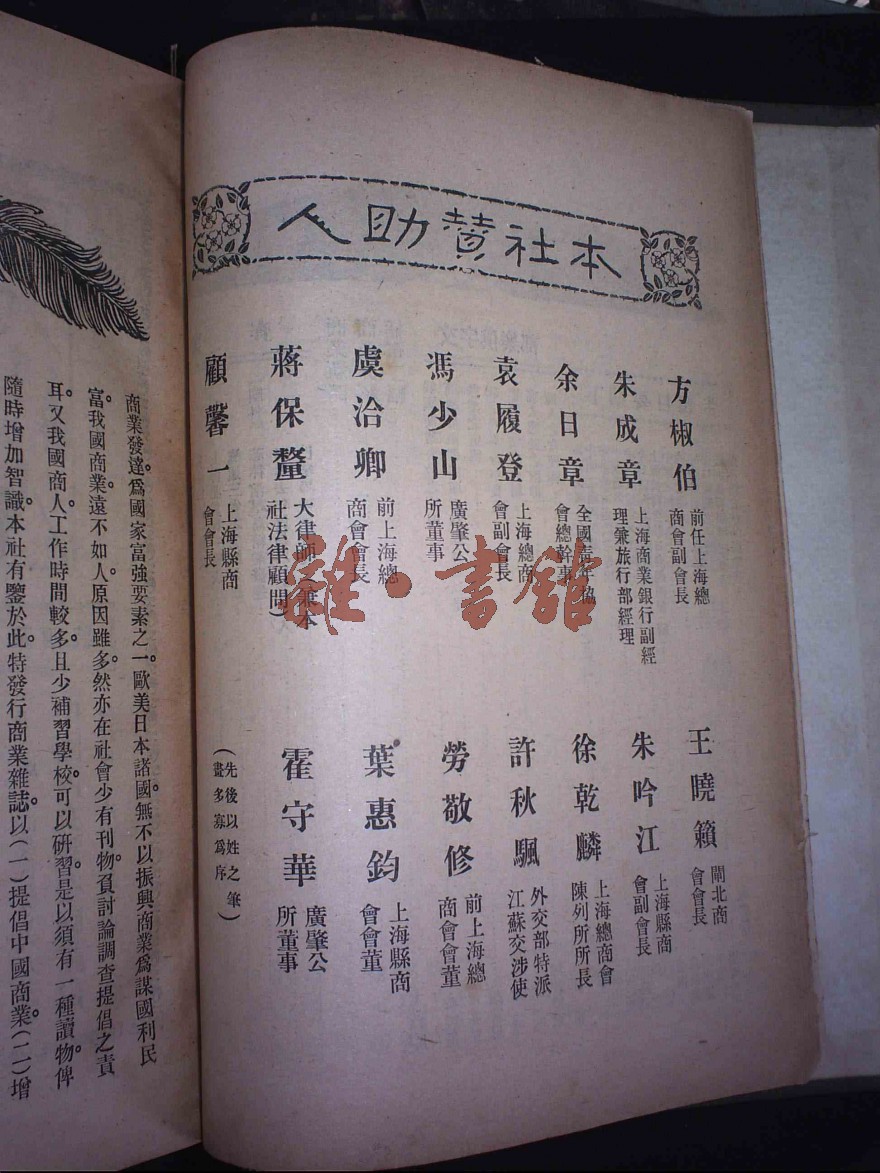 本社贊助人
方椒伯 前任上海總商會副會長
王曉籟 閘北商會會長
朱成章 上海商業銀行副經理兼旅行部經理
朱吟江 上海縣商會副會長
余日章 全國青年協會總幹事
徐乾麟 上海總商會陳列所所長
袁履登 上海總商會副會長
許秋颿 外交部特派江蘇交涉使
馮少山 廣肇公所董事
勞敬修 前上海總商會會董
虞洽卿 前上海總商會會長
葉惠鈞 上海縣商會會董
蔣保釐 大律師(兼本社法律顧問)
霍守華 廣肇公所董事
顧馨一 上海縣商會會長
(先後以姓之筆畫多寡爲序)
商業發達。爲國家富強要素之一。歐美日本諸國。無不以振興商業爲謀國利民
富。我國商業。遠不如人。原因雖多。然亦在社會少有刊物。負討論調查提倡之責
耳。又我國商人。工作時間較多。且少補習學校。可以研習。是以須有一種讀物。俾
隨時增加智識。本社有鑒於此。特發行商業雜誌。以(一)提倡中國商業。(二)增
雜·書館